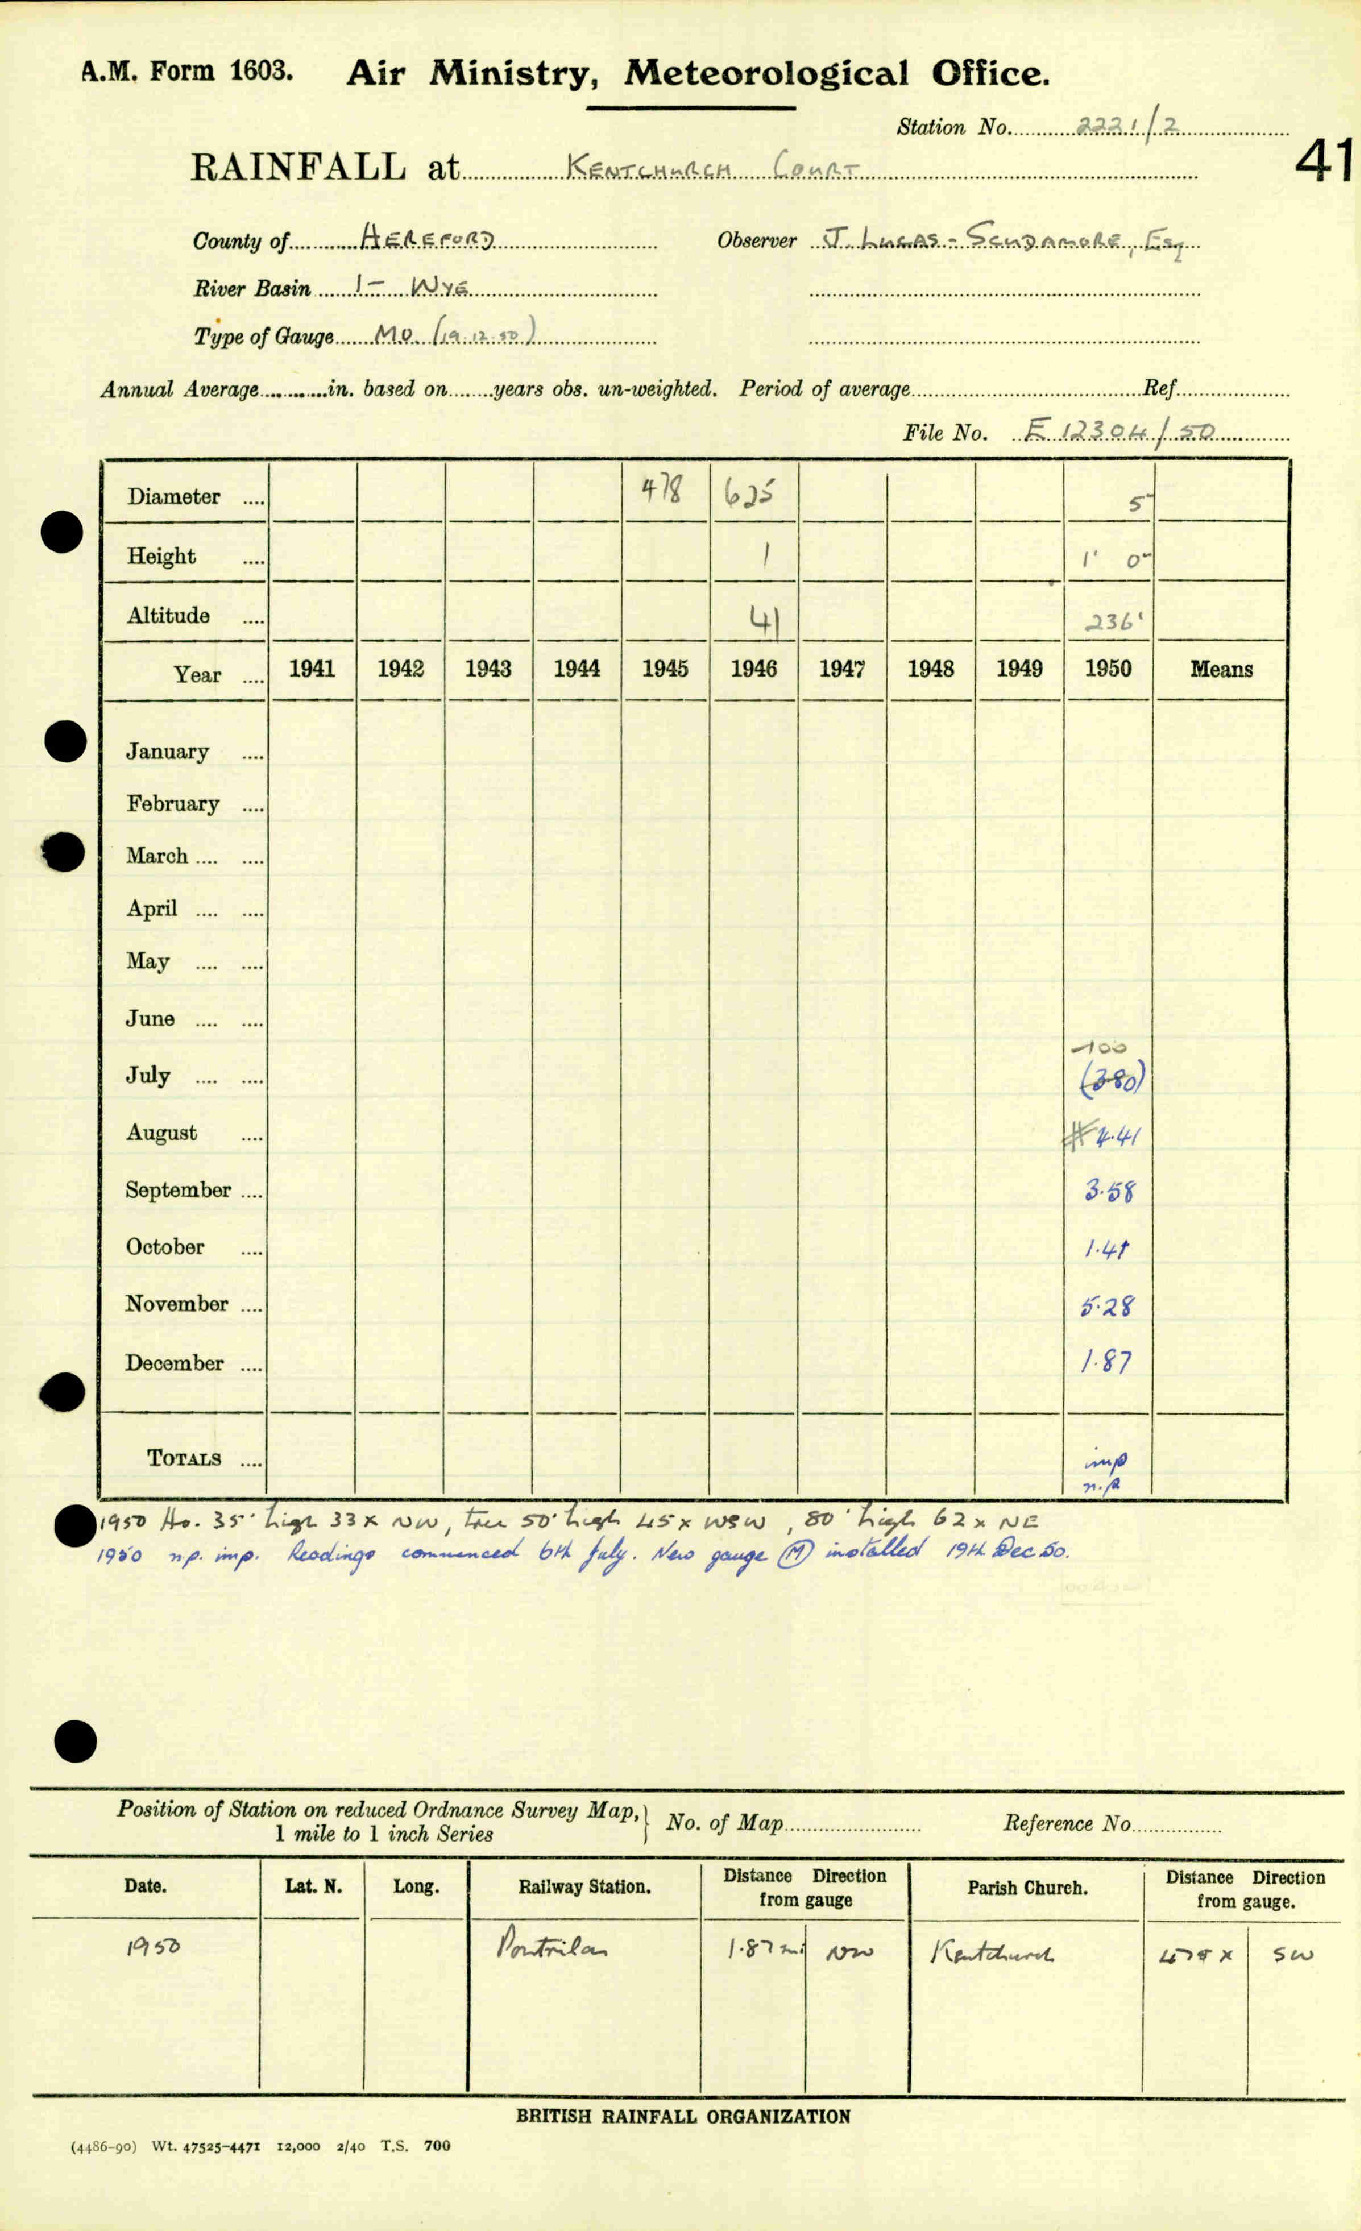 A.M. Form 1603. Air Ministry, Meteorological Office.
Station No. 2221/2
41
RAINFALL at KENTCHURCH COURT
County of HEREFORD Observer J. LUCAS-SCUDAMORE, Esq
River Basin 1- WYE
Type of Gauge MO (19.12.50)
Annual Average in. based on years obs. un-weighted. Period of average Ref.
File No. E 12304/50
Diameter .... 478 625 5"
Height .... 1 1' 0"
Altitude .... 41 236'
Year .... 1941 1942 1943 1944 1945 1946 1947 1948 1949 1950 Means
January ....
February ....
March .... ....
April .... ....
May .... ....
June .... ....
100
July .... .... (380)
August .... 4.41
September .... 3.58
October .... 1.41
November .... 5.28
December .... 1.87
TOTALS .... imp
n.p
1950 Ho. 35' high 33 x NW, tree 50' high 45 x WSW, 80' high 62 x NE
1950 n.p. imp. Readings commenced 6th July. New gauge (M) installed 19th Dec 50.
Position of Station on reduced Ordnance Survey Map, No. of Map Reference No.
1 mile to 1 inch Series
Date. Lat. N. Long. Railway Station. Distance Direction from gauge Parish Church. Distance Direction from gauge.
1950 Pontrilas 1.87 mi NW Kentchurch 475 x SW
BRITISH RAINFALL ORGANIZATION
(4486-90) Wt. 47525-4471 12,000 2/40 T.S. 700